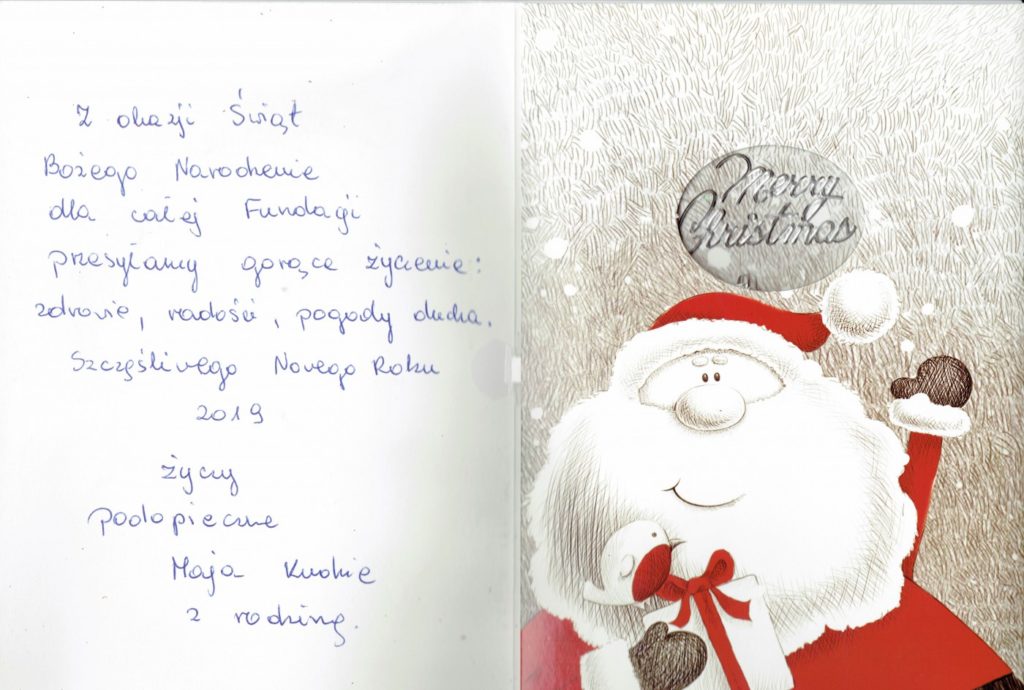 Z okazji Świąt
Bożego Narodzenie
dla całej Fundacji
przesyłamy gorące życzenie:
zdrowie, radości, pogody ducha.
Szczęśliwego Nowego Roku
2019
życzy
podopieczne
Maja
z rodziną.
Merry
Christmas